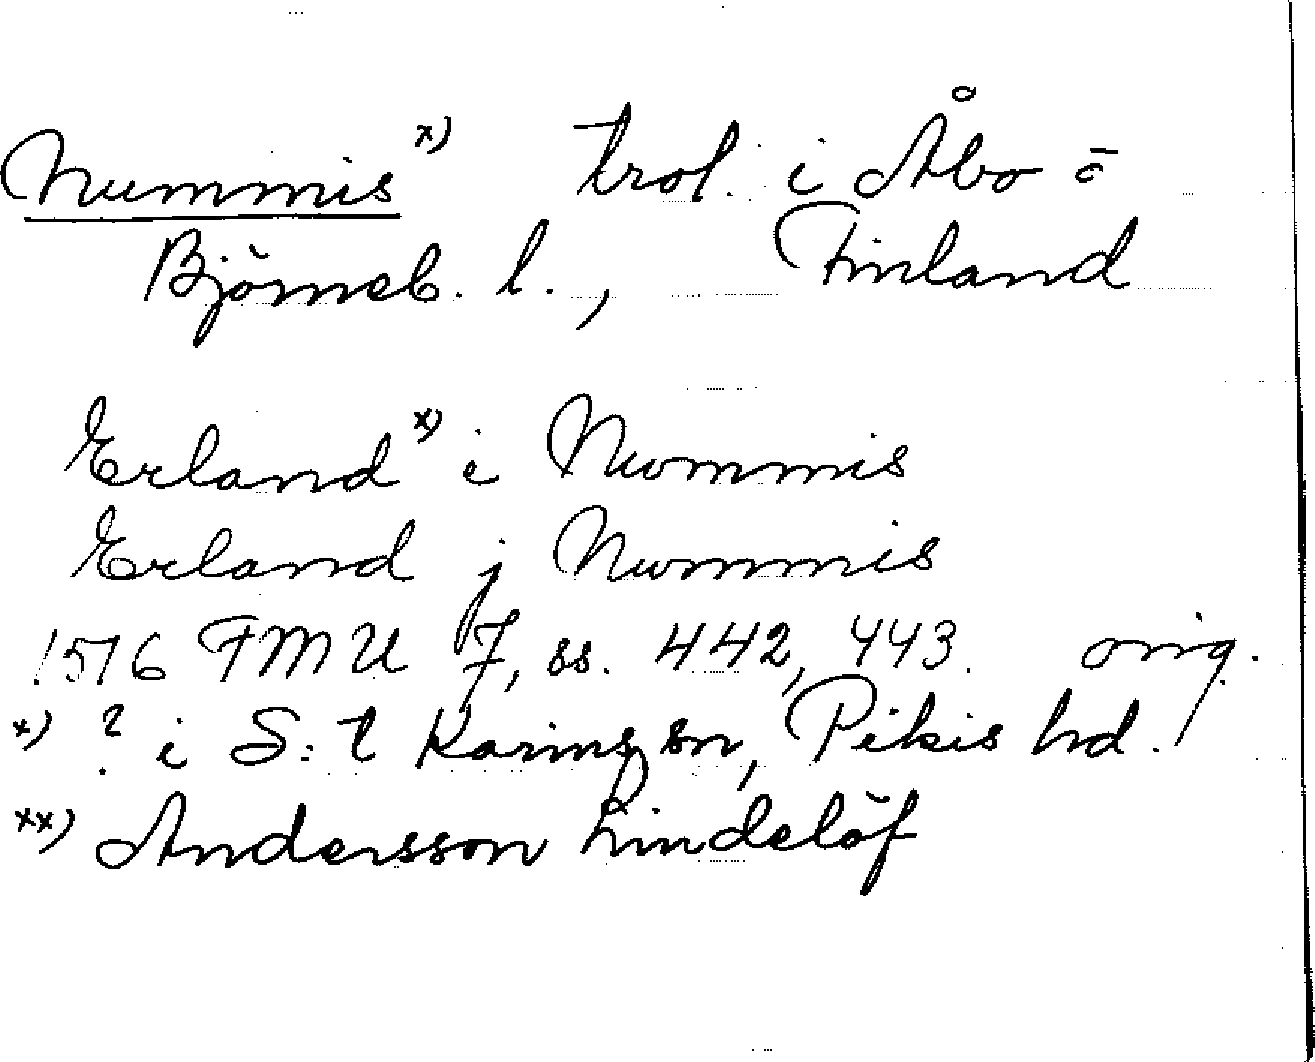 Nummis x) trol. i Åbo o
Björneb. l., Finland
Erland x) i Nwmmis
Erland j Nwmmis
1516 FMU 7, ss. 442, 443. orig.
x) ? i S:t Karins sn, Pikis hd.
xx) Andersson Lindelöf